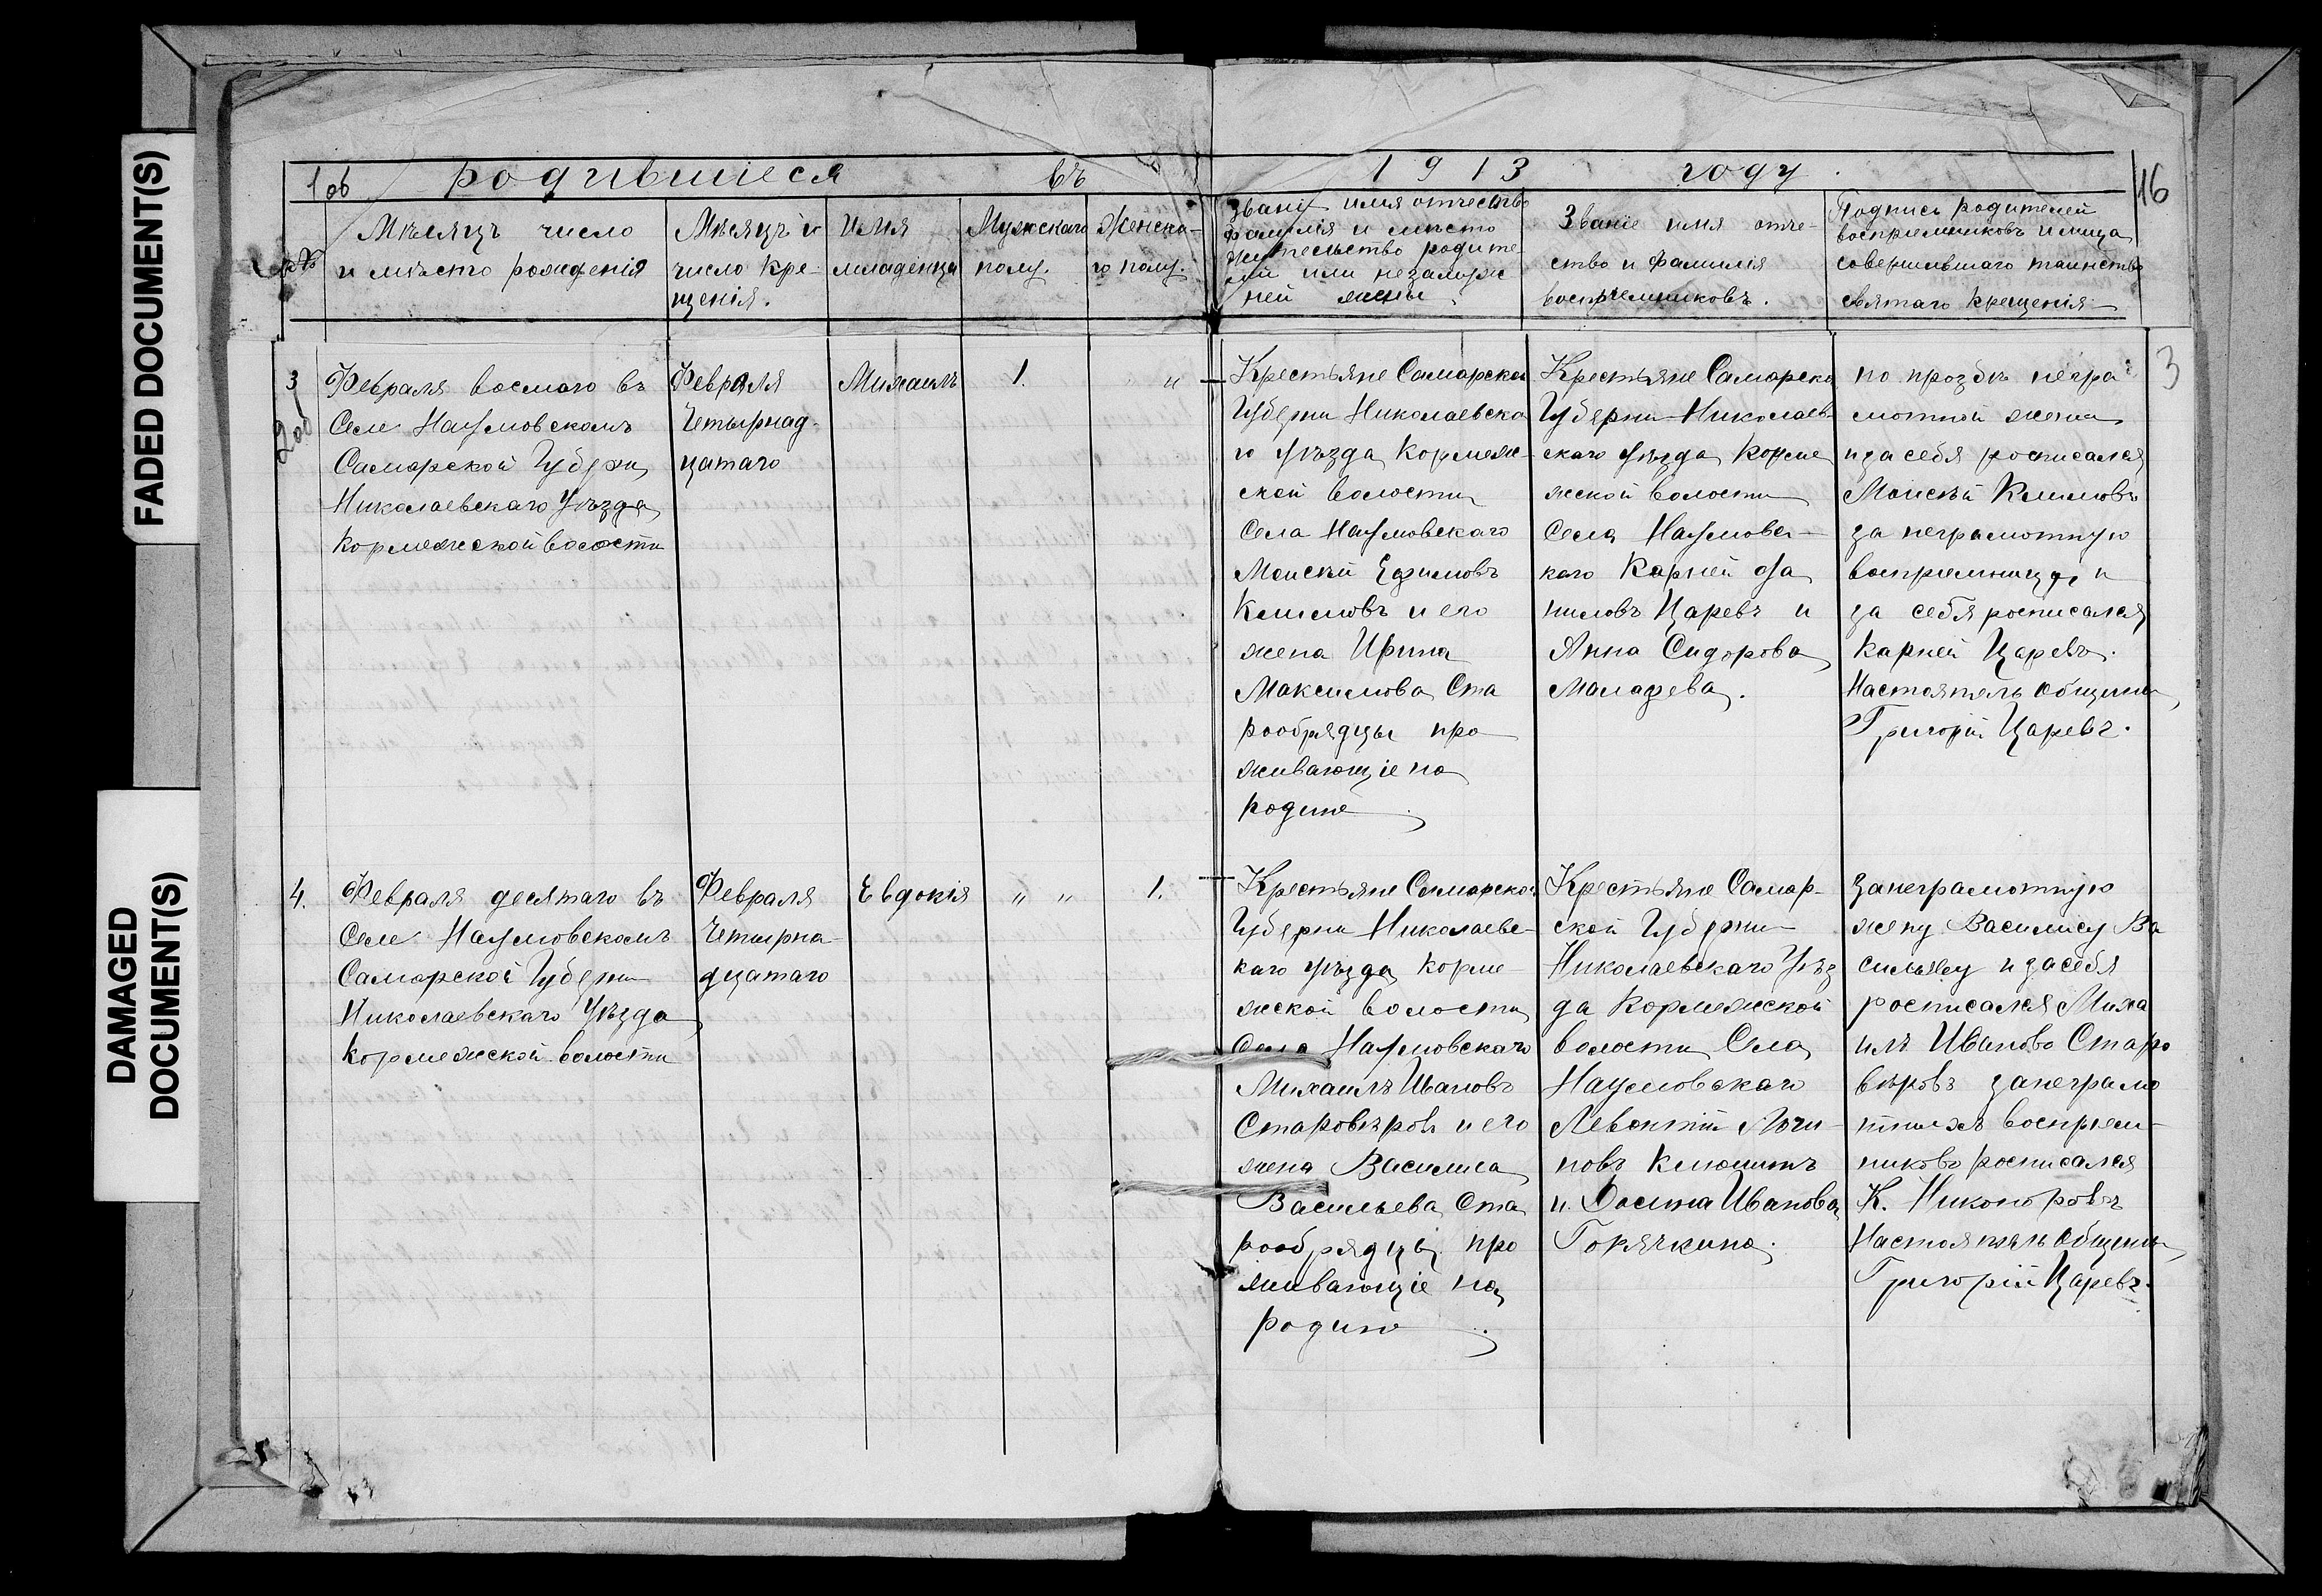 FADED DOCUMENT(S)
DAMAGED
DOCUMENT(S)
1 об
родившиеся въ 1913 году.
16
Мѣсяцъ число
и мѣсто рожденія
Мѣсяцъ и
число кре-
щенія.
имя
младенца
Мужскаго
полу.
Женска-
го полу.
Званіе имя отчество
фамилія и место
жительство родите
лей или незамуж
ней жены
Званіе имя отче-
ство и фамилія
воспріемниковъ.
Подпись родителей
воспріемниковъ и лица
совершившаго таинство
святаго крещенія
3
2об
Февраля восмаго въ
Селе Наумовскомъ
Самарской Губерни
Николаевскаго Уѣзда
Кормежской волости
Февраля
Четырнад-
цатаго
Михаилъ
1.
"
Крестьяне Самарской
Губерни Николаевска
го Уѣзда Кормеж-
ской волости
Села Наумовскаго
Моисѣй Ефимовъ
Климовъ и его
жена Ирина
Максимова Ста
рообрядцы про
живающіе на
родине
Крестьяне Самарско
Губерни Николаев-
скаго Уѣзда Корме
жской волости
Села Наумовс-
каго Карней Да
ниловъ Царевъ и
Анна Сидорова
Малафева.
по прозбѣ негра
мотной жены
и за себя росписался
Моисѣй Климовъ
за неграмотную
воспріемницу и
за себя росписался
Карней Царевъ.
Настоятель общины
Григорій Царевъ.
3
4.
Февраля десятаго въ
Селе Наумовскомъ
Самарской Губерни
Николаевскаго Уѣзда
Кормежской волости
Февраля
Четырна-
дцатаго
Евдокія
" "
1.
Крестьяне Самарской
Губерни Николаевс-
каго Уѣзда Корме-
жской волости
Села Наумовскаго
Михаилъ Ивановъ
Старовѣровъ и его
жена Василиса
Васильева Ста
рообрядцы про
живающіе на
родине
Крестьяне Самар-
ской Губерни
Николаевскаго Уѣз
да Кормежской
волости Села
Наумовскаго
Левонтій Логи-
новъ Клюшинъ
и Ивановна
Горячкина.
За неграмотную
жену Василису Ва
сильеву и за себя
росписался Миха
илъ Ивановъ Старо
вѣровъ за неграмо
тныхъ воспріем-
никовъ росписался
К. Никоноровъ
Настоятель Общины
Григорій Царевъ.